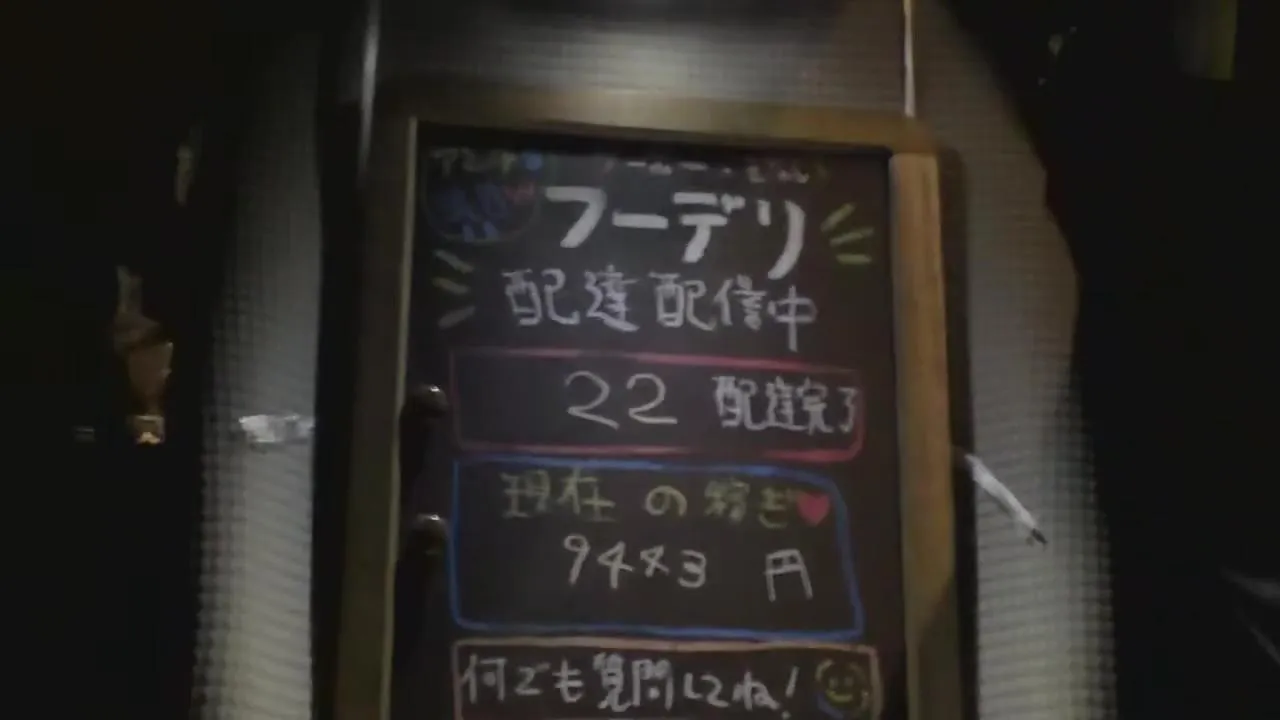 フーデリ
配達配信中
22 配達完了
現在の稼ぎ
円
何でも質問してね!